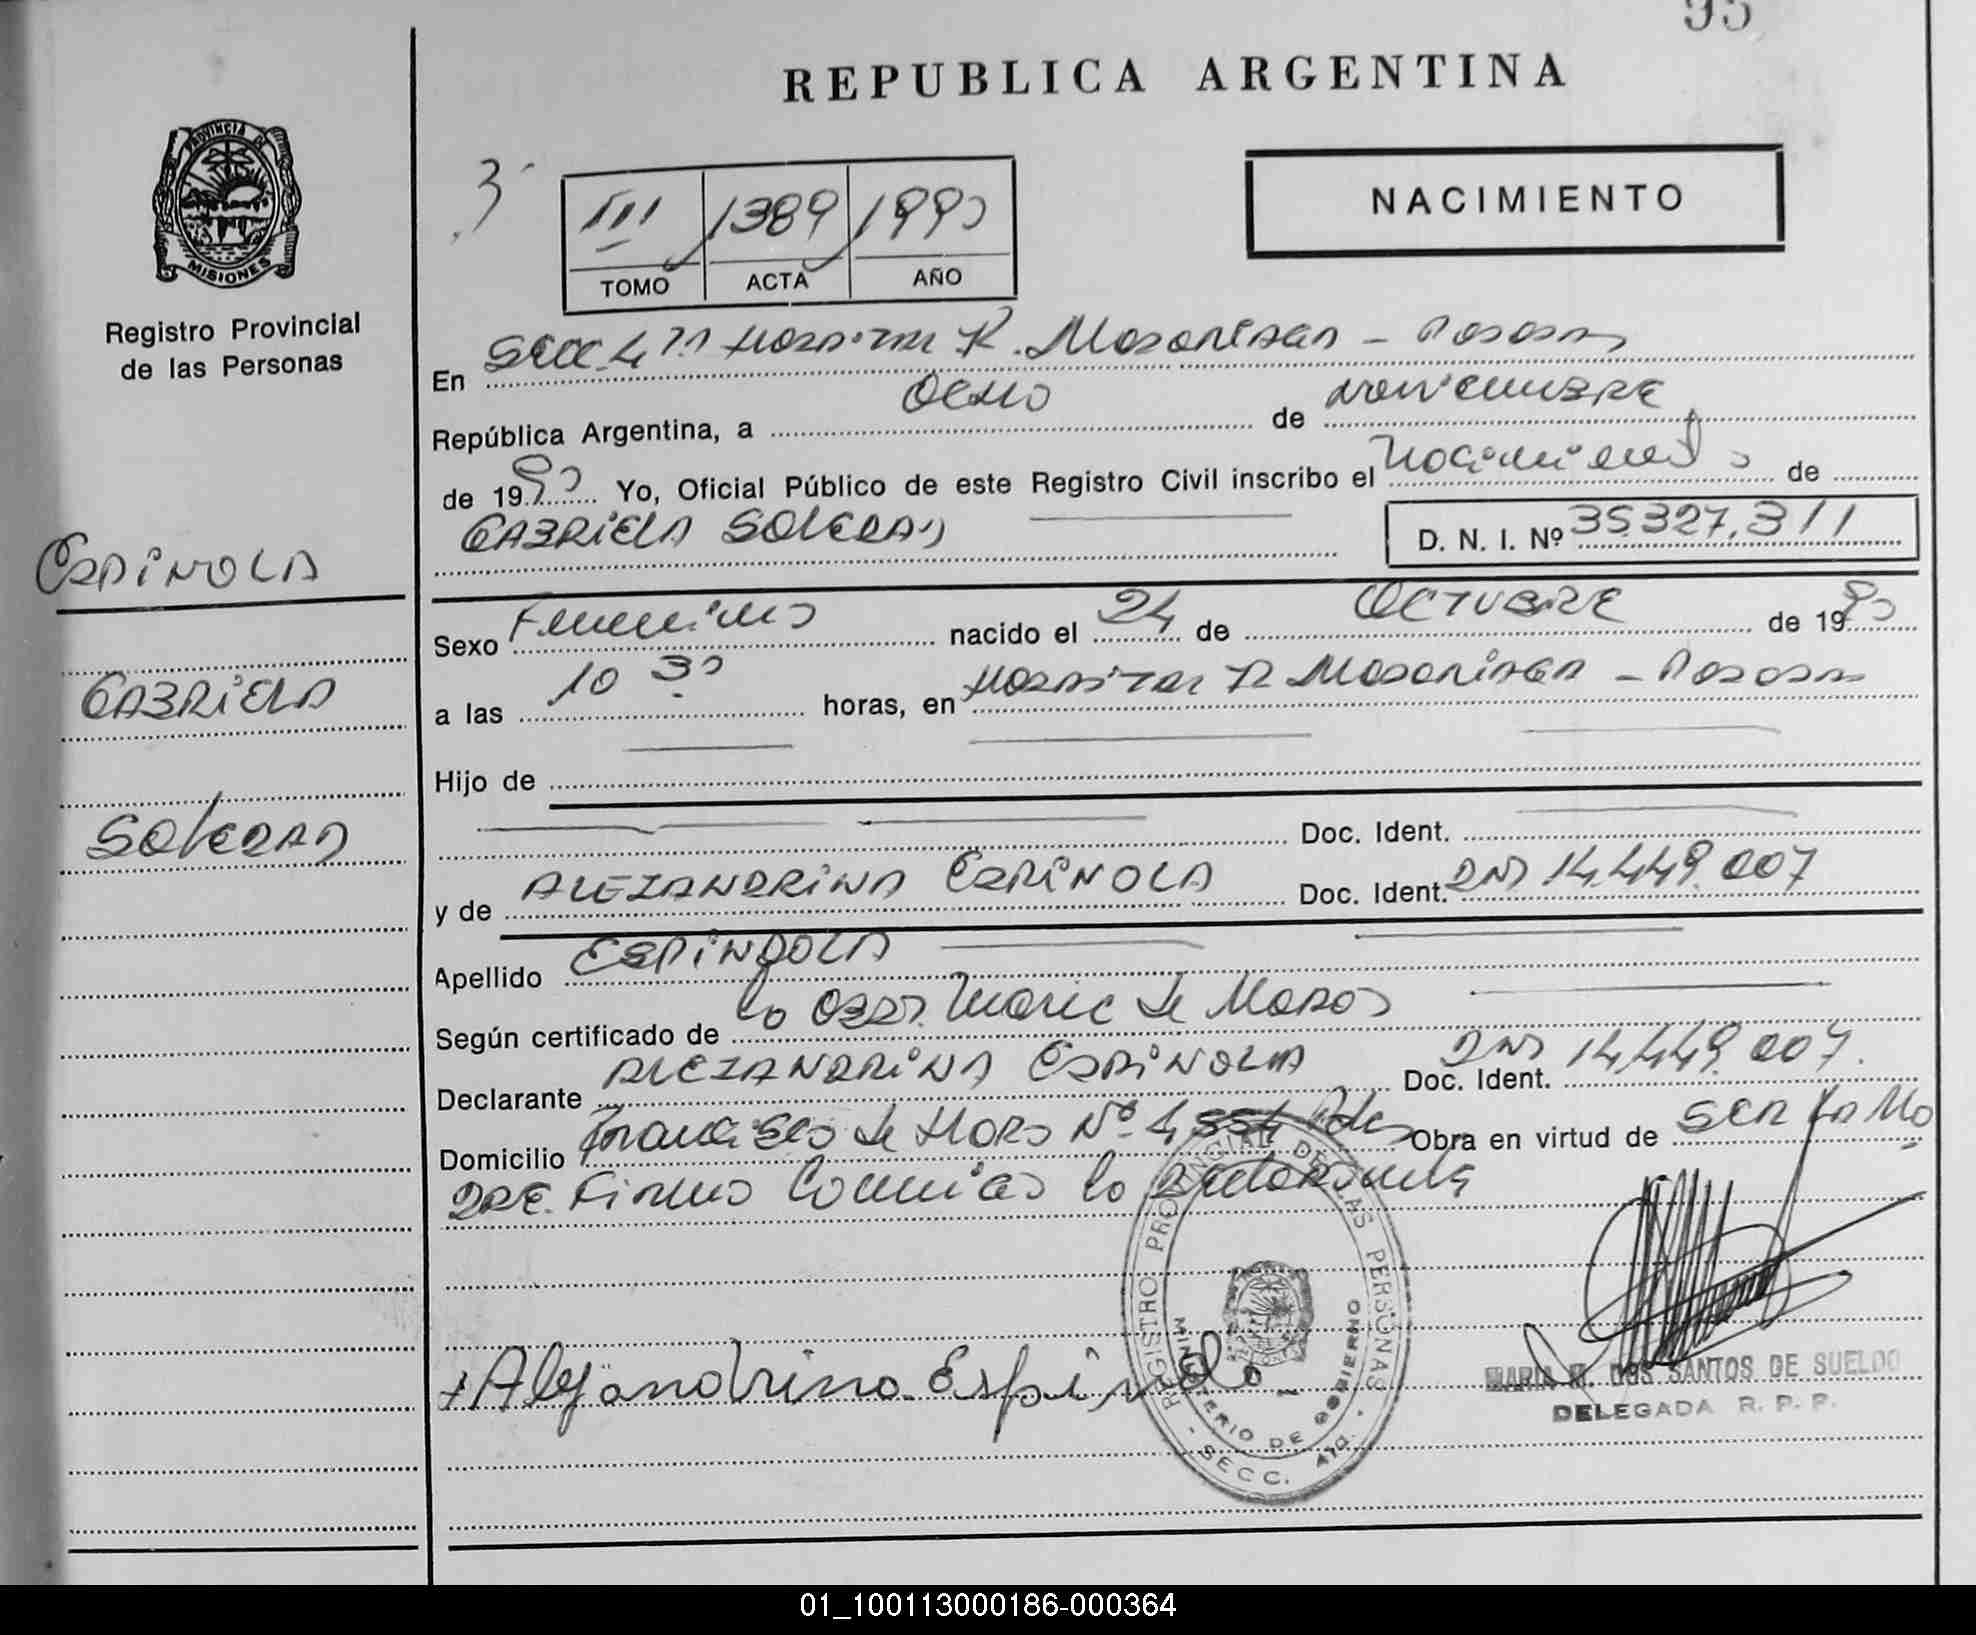 95
REPUBLICA ARGENTINA
PROVINCIA DE
MISIONES
Registro Provincial
de las Personas
3
III 1389 1990
TOMO ACTA AÑO
NACIMIENTO
En Secc 4ta Hospital R. Madariaga - Posadas
República Argentina, a Ocho de noviembre
de 1990 Yo, Oficial Público de este Registro Civil inscribo el nacimiento de
GABRIELA SOLEDAD
D. N. I. Nº 35.327.311
ESPINOLA
GABRIELA
SOLEDAD
Sexo Femenino nacido el 24 de OCTUBRE de 1990
a las 10 30 horas, en Hospital R Madariaga - Posadas
Hijo de
Doc. Ident.
y de ALEJANDRINA ESPINOLA Doc. Ident. DNI 14.449.007
Apellido ESPINDOLA
Según certificado de la Obst. Marie de
Declarante ALEJANDRINA ESPINOLA Doc. Ident. DNI 14.449.007.
Domicilio Francisco de Haro Nº 4554 Pdas Obra en virtud de SER LA MA
DRE. Firma Conmigo la Declarante
+Alejandrina Espindola
REGISTRO PROVINCIAL DE LAS PERSONAS
MINISTERIO DE GOBIERNO
- SECC. 4ta. - DLV.
MARIA M. DOS SANTOS DE SUELDO
DELEGADA R. P. P.
01_100113000186-000364